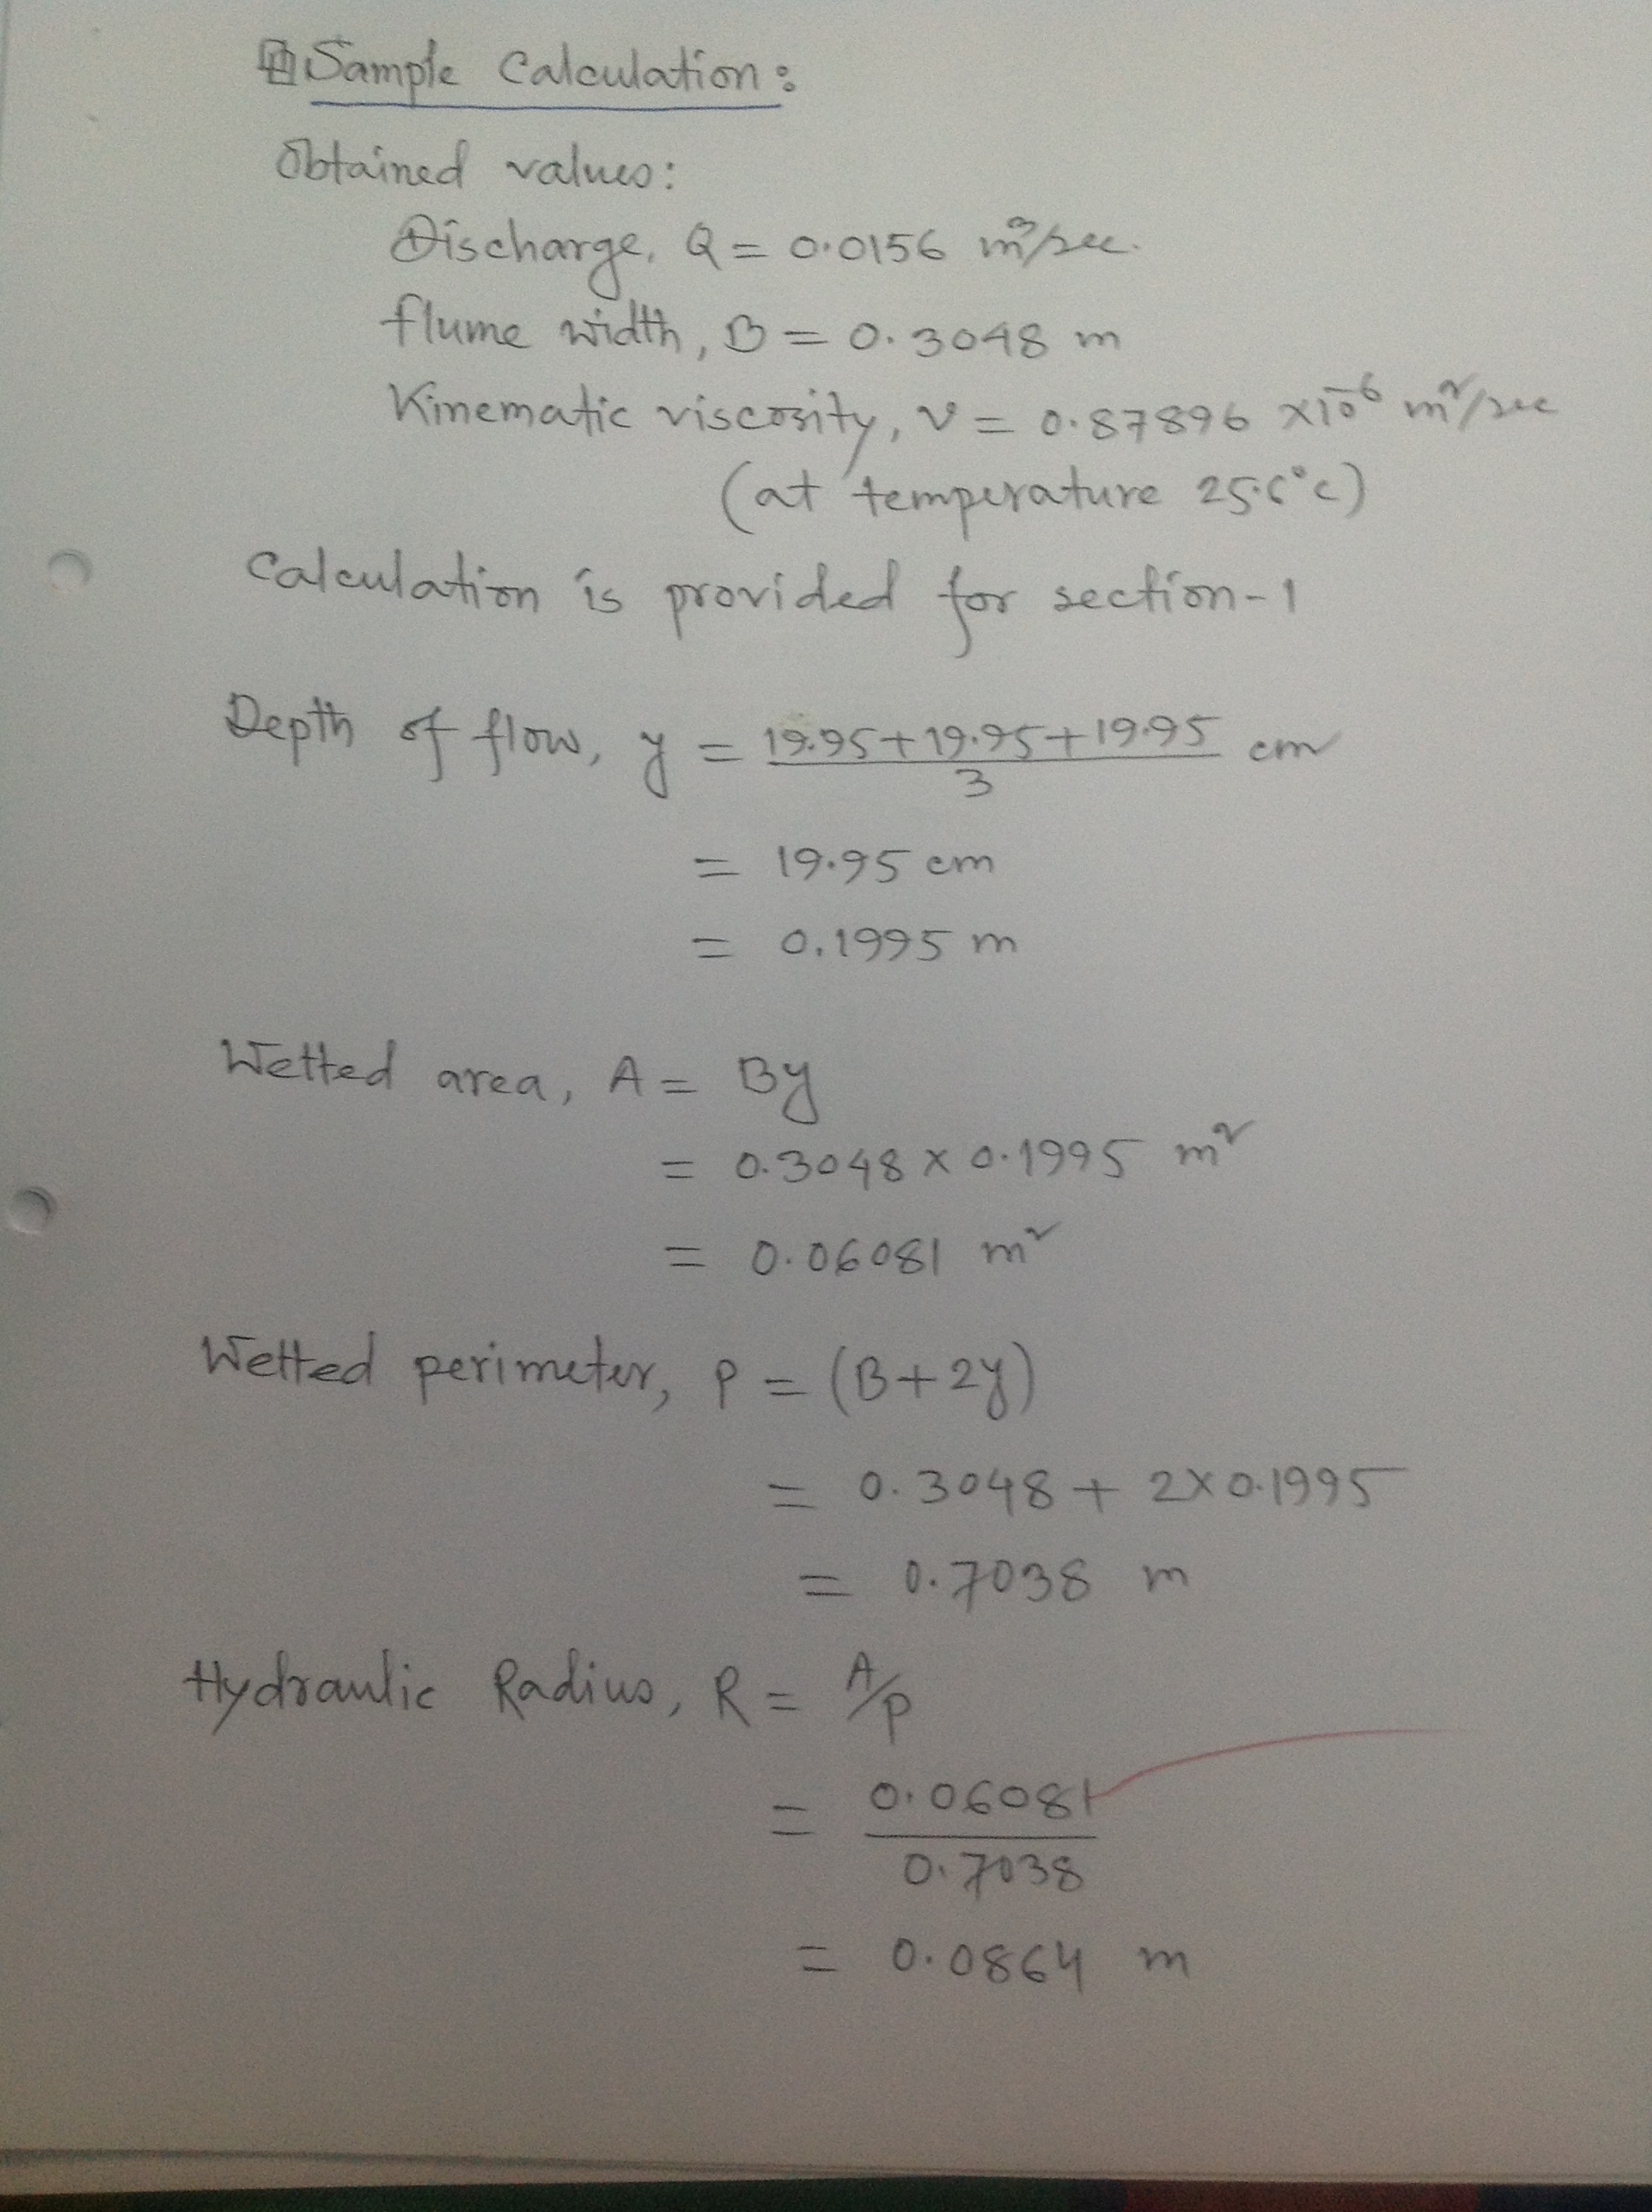 Sample Calculation:
Obtained values:
Discharge, Q = 0.0156 m³/sec.
flume width, B = 0.3048 m
Kinematic viscosity, ν = 0.87896 ×10⁻⁶ m²/sec
(at temperature 25.6°c)
Calculation is provided for section-1
Depth of flow, y = 19.95+19.95+19.95 / 3 cm
= 19.95 cm
= 0.1995 m
Wetted area, A = By
= 0.3048 × 0.1995 m²
= 0.06081 m²
Wetted perimeter, P = (B+2y)
= 0.3048 + 2×0.1995
= 0.7038 m
Hydraulic Radius, R = A/P
= 0.06081 / 0.7038
= 0.0864 m